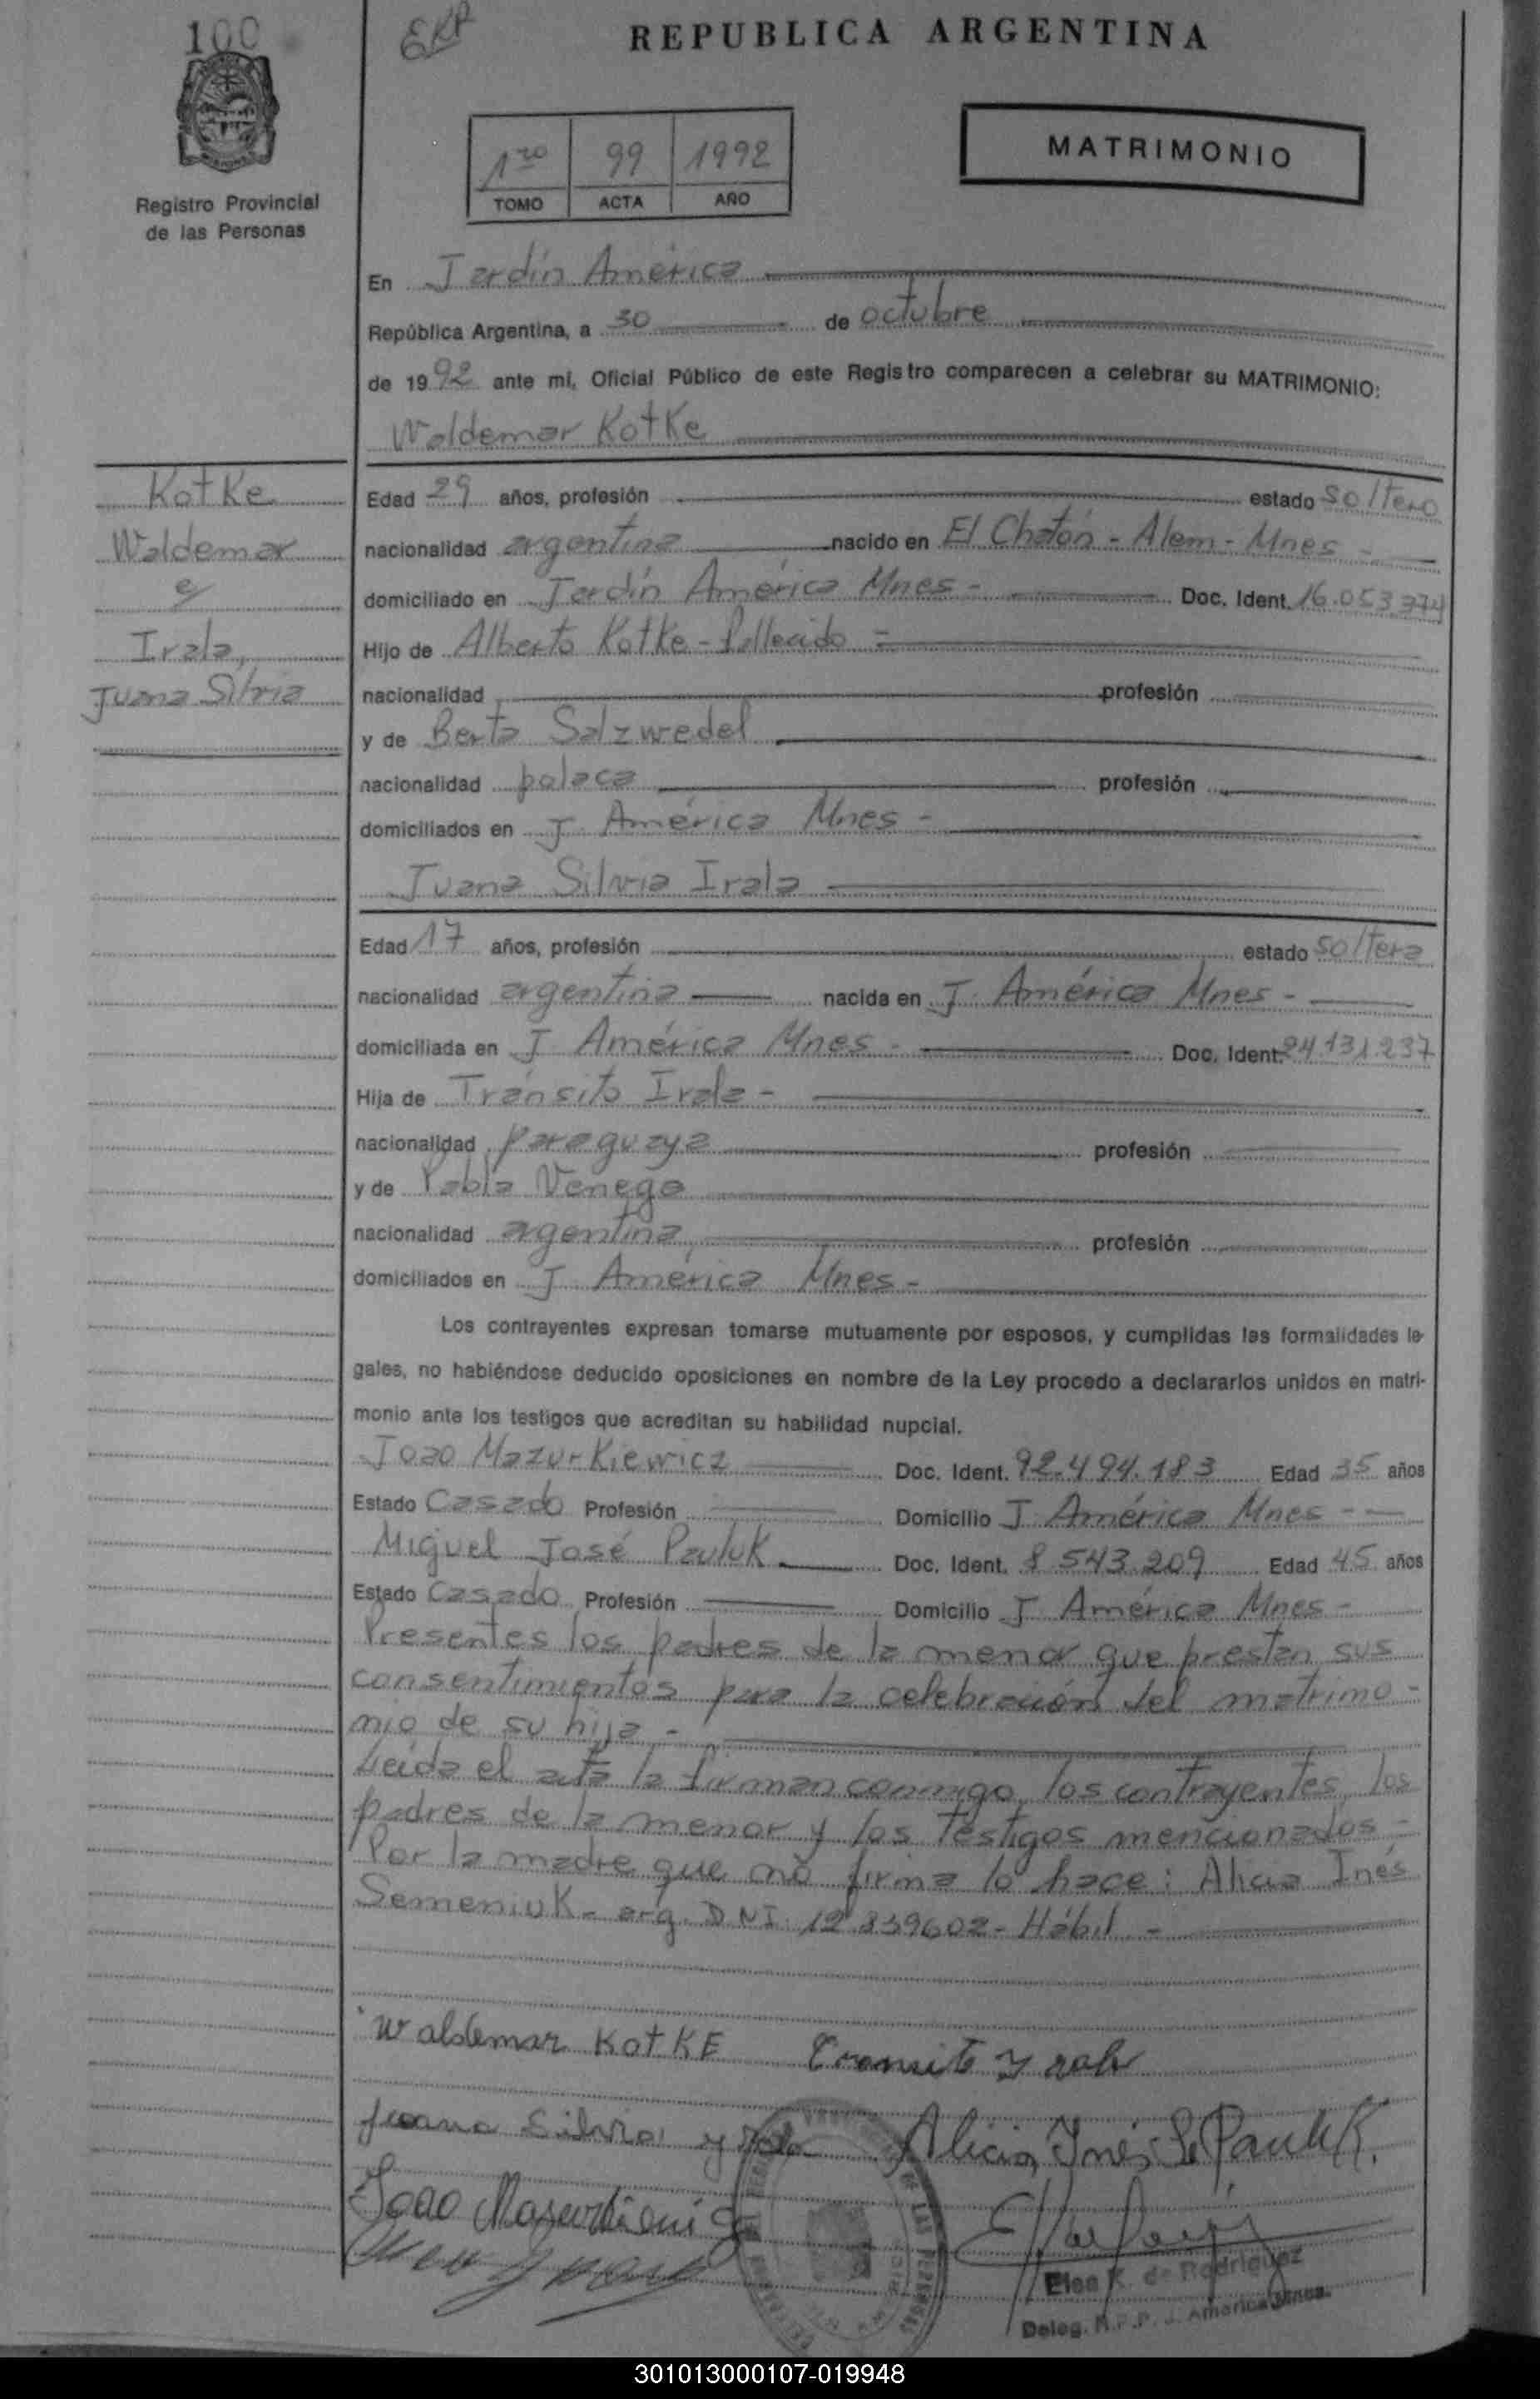 100
ERP
REPUBLICA ARGENTINA
Registro Provincial
de las Personas
1ro 99 1992
TOMO ACTA AÑO
MATRIMONIO
En Jardín América
República Argentina, a 30 de octubre
de 1992 ante mi, Oficial Público de este Registro comparecen a celebrar su MATRIMONIO:
Waldemar Kotke
Kotke
Waldemar
e/
Irala,
Juana Silvia
Edad 29 años, profesión estado soltero
nacionalidad argentina nacido en El Chatón - Alem - Mnes -
domiciliado en Jardín América Mnes - Doc. Ident. 16.053.374
Hijo de Alberto Kotke - fallecido =
nacionalidad profesión
y de Berta Salzwedel
nacionalidad polaca profesión
domiciliados en J. América Mnes -
Juana Silvia Irala
Edad 17 años, profesión estado soltera
nacionalidad argentina nacida en J. América Mnes -
domiciliada en J América Mnes - Doc. Ident. 24.131.237
Hija de Tránsito Irala -
nacionalidad paraguaya profesión
y de Pabla Venega
nacionalidad argentina, profesión
domiciliados en J. América Mnes -
Los contrayentes expresan tomarse mutuamente por esposos, y cumplidas las formalidades le-
gales, no habiéndose deducido oposiciones en nombre de la Ley procedo a declararlos unidos en matri-
monio ante los testigos que acreditan su habilidad nupcial.
Joao Mazurkiewicz Doc. Ident. 92.494.183 Edad 35 años
Estado Casado Profesión Domicilio J. América Mnes -
Miguel José Pauluk Doc. Ident. 8.543.209 Edad 45 años
Estado Casado Profesión Domicilio J. América Mnes -
Presentes los padres de la menor que prestan sus
consentimientos para la celebración del matrimo-
nio de su hija -
Leída el acta la firman conmigo, los contrayentes, los
padres de la menor y los testigos mencionados -
Por la madre que no firma lo hace: Alicia Inés
Semeniuk - arg. DNI. 12.839602 - Hábil -
Waldemar KotKE Transito Yrala
Juana Silvia Yrala Alicia Inés S de Pauluk.
Joao
Elsa K. de Rodriguez
Deleg. R.P.P. J. America Mnes.
301013000107-019948